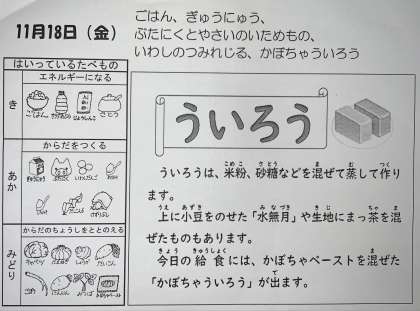 11月18日（金）
ごはん、ぎゅうにゅう、
ぶたにくとやさいのいためもの、
いわしのつみれじる、かぼちゃういろう
はいっているたべもの
き
エネルギーになる
ごはん
さとう
あか
からだをつくる
ぎゅうにゅう
ぶたにく
みどり
からだのちょうしをととのえる
キャベツ
しょうが
だいこん
にんじん
かぼちゃペースト
ういろう
ういろうは、米粉、砂糖などを混ぜて蒸して作り
ます。
上に小豆をのせた「水無月」や生地にまっ茶を混
ぜたものもあります。
今日の給食には、かぼちゃペーストを混ぜた
「かぼちゃういろう」が出ます。